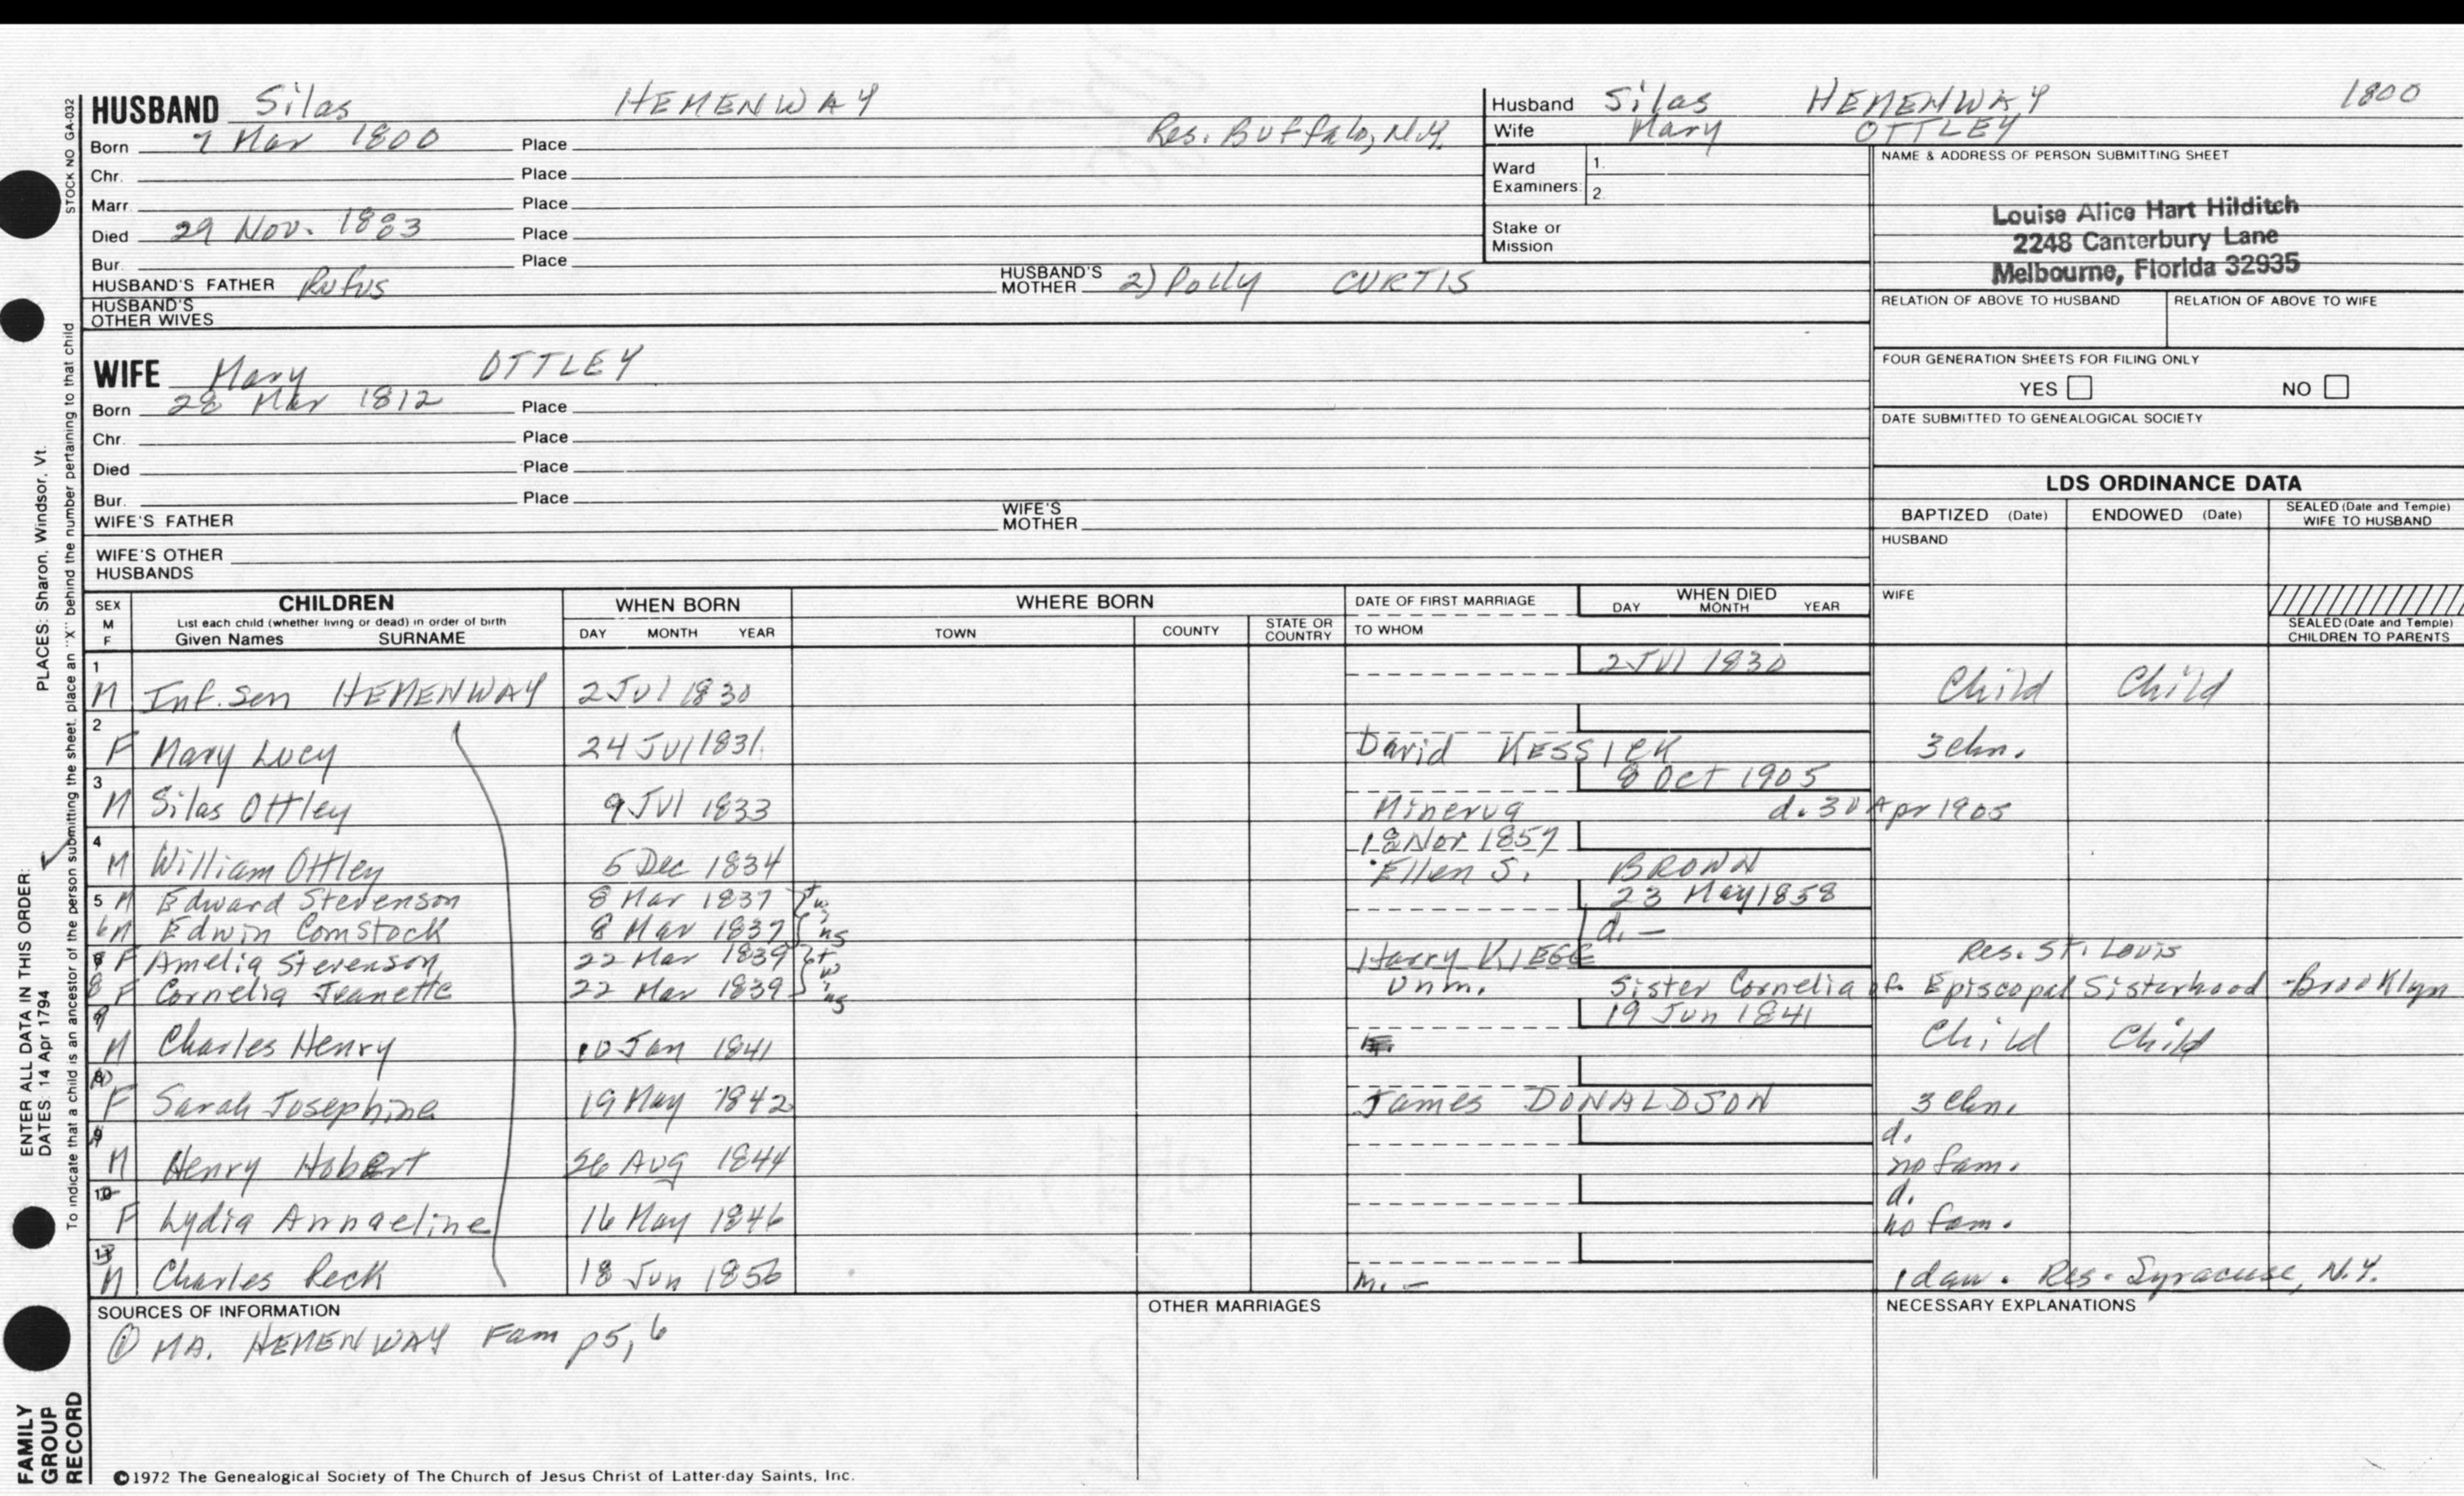 HUSBAND Silas HEMENWAY
Born 7 Mar 1800 Place Res. Buffalo, N.Y.
Chr. Place
Marr Place
Died 29 Nov. 1883 Place
Bur. Place
HUSBAND'S FATHER Rufus HUSBAND'S MOTHER 2) Polly CURTIS
HUSBAND'S OTHER WIVES
WIFE Mary OTTLEY
Born 28 Mar 1812 Place
Chr. Place
Died Place
Bur. Place
WIFE'S FATHER WIFE'S MOTHER
WIFE'S OTHER HUSBANDS
Husband Silas HEMENWAY 1800
Wife Mary OTTLEY
Ward Examiners: 1. 2.
Stake or Mission
NAME & ADDRESS OF PERSON SUBMITTING SHEET
Louise Alice Hart Hilditch
2248 Canterbury Lane
Melbourne, Florida 32935
RELATION OF ABOVE TO HUSBAND RELATION OF ABOVE TO WIFE
FOUR GENERATION SHEETS FOR FILING ONLY
YES NO
DATE SUBMITTED TO GENEALOGICAL SOCIETY
LDS ORDINANCE DATA
BAPTIZED (Date) ENDOWED (Date) SEALED (Date and Temple) WIFE TO HUSBAND
HUSBAND
WIFE
SEALED (Date and Temple) CHILDREN TO PARENTS
SEX M F CHILDREN List each child (whether living or dead) in order of birth Given Names SURNAME
WHEN BORN DAY MONTH YEAR
WHERE BORN TOWN COUNTY STATE OR COUNTRY
DATE OF FIRST MARRIAGE TO WHOM
WHEN DIED DAY MONTH YEAR
1 M Inf. Son HEMENWAY 2 Jul 1830 2 Jul 1830 Child Child
2 F Mary Lucy 24 Jul 1831 David KESSICK 3 chn.
3 M Silas Ottley 9 Jul 1833 8 Oct 1905 Minerva d. 30 Apr 1905
4 M William Ottley 5 Dec 1834 18 Nov 1857 Ellen S. BROWN
5 M Edward Stevenson 8 Mar 1837 twins 23 May 1858
6 M Edwin Comstock 8 Mar 1837 d. —
F Amelia Stevenson 22 Mar 1839 twins Harry Res. St. Louis
8 F Cornelia Jeanette 22 Mar 1839 Unm. Sister Cornelia of Episcopal Sisterhood - Brooklyn
9 M Charles Henry 10 Jan 1841 19 Jun 1841 Child Child
10 F Sarah Josephine 19 May 1842 James DONALDSON 3 chn.
M Henry Hobert 26 Aug 1844 d. no fam.
F Lydia Annaeline 16 May 1846 d. no fam.
M Charles Peck 18 Jun 1856 m. — 1 dau. Res. Syracuse, N.Y.
SOURCES OF INFORMATION
① MA. HEMENWAY Fam p5, 6
OTHER MARRIAGES
NECESSARY EXPLANATIONS
©1972 The Genealogical Society of The Church of Jesus Christ of Latter-day Saints, Inc.
STOCK NO GA-032
To indicate that a child is an ancestor of the person submitting the sheet, place an "X" behind the number pertaining to that child
ENTER ALL DATA IN THIS ORDER:
DATES: 14 Apr 1794 PLACES: Sharon, Windsor, Vt.
FAMILY
GROUP
RECORD